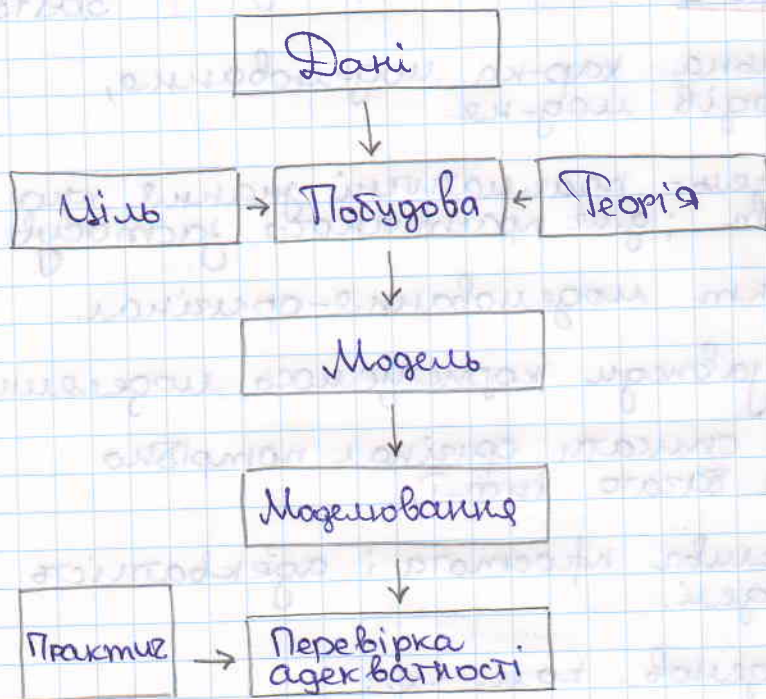 Дані
Ціль
Побудова
Теорія
Модель
Моделювання
Практич
Перевірка
адекватності